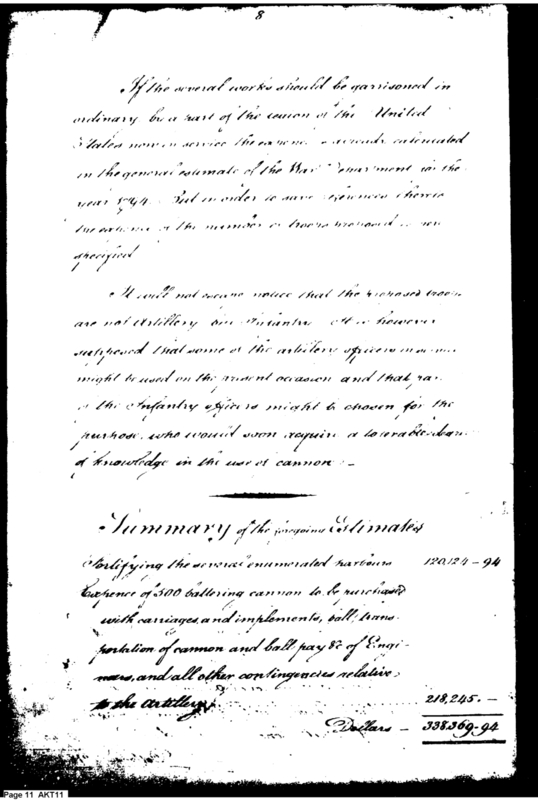 8
If the several works should be garrisoned in
ordinary by a part of the of the United
States now in service the expence is already calculated
in the general estimate of the War Department for the
year 1794. But in order to save references
the expence of the number of troops proposed is
specified
It will not escape notice that the proposed troops
are not Artillery but Infantry. It is however
supposed that some of the artillery officers in service
might be used on the present occasion and that part
of the Infantry officers might be chosen for the
purpose, who would soon acquire a tolerable degree
of knowledge in the use of cannon. —
Summary of the foregoing Estimates
Fortifying the several enumerated harbours 120.124 - 94
Expence of 500 battering cannon to be purchased
with carriages, and implements, ball, trans
portation of cannon and ball, pay &c of Engi
neers, and all other contingencies relative,
to the artillery, 218,245. —
Dollars — 338.369 - 94
Page 11 AKT11